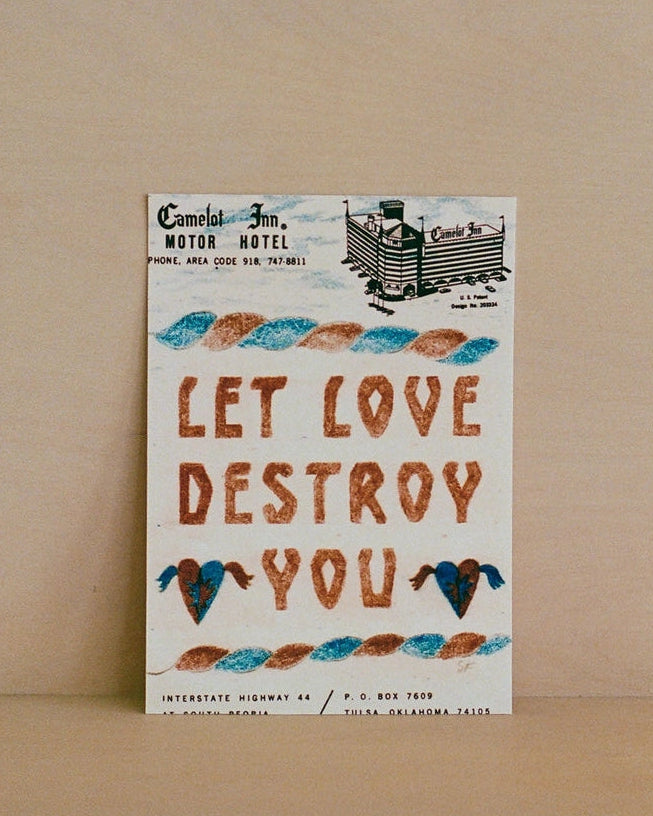 Camelot Inn.
MOTOR HOTEL
PHONE, AREA CODE 918, 747-8811
Camelot Inn
U. S. Patent
Design No. 203234
LET LOVE
DESTROY
YOU
SF
INTERSTATE HIGHWAY 44 / P. O. BOX 7609
AT SOUTH PEORIA TULSA, OKLAHOMA 74105